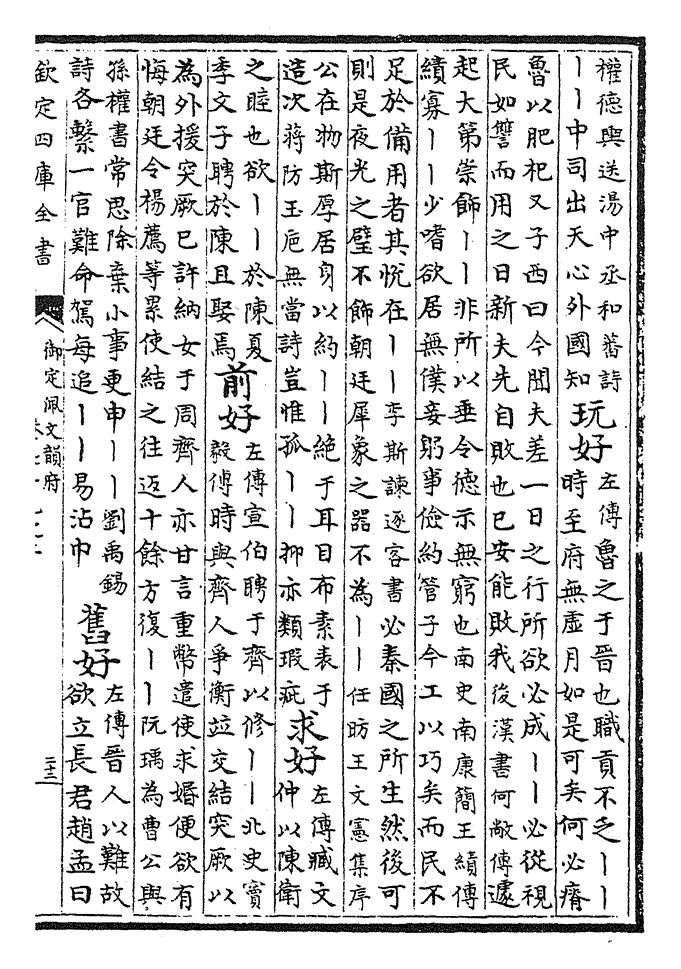 權德輿送湯中丞和蕃詩
丨丨中司出天心外國知
玩好
左傳魯之于晉也職貢不乏丨丨
時至府無虛月如是可矣何必瘠
魯以肥杞又子西曰今聞夫差一日之行所欲必成丨丨必從視
民如讐而用之日新夫先自敗也已安能敗我後漢書何敞傳遽
起大第崇飾丨丨非所以垂令德示無窮也南史南康簡王績傳
績寡丨丨少嗜欲居無僕妾躬事儉約管子今工以巧矣而民不
足於備用者其悦在丨丨李斯諫逐客書必秦國之所生然後可
則是夜光之璧不飾朝廷犀象之器不為丨丨任昉王文憲集序
公在物斯厚居身以約丨丨絶于耳目布素表于
造次蔣防玉巵無當詩豈惟孤丨丨抑亦類瑕疵
求好
左傳臧文
仲以陳衛
之睦也欲丨丨於陳夏
季文子聘於陳且娶焉
前好
左傳宣伯聘于齊以修丨丨北史竇
毅傳時與齊人爭衡竝交結突厥以
為外援突厥已許納女于周齊人亦甘言重幣遣使求婚便欲有
悔朝廷令楊薦等累使結之往返十餘方復丨丨阮瑀為曹公與
孫權書常思除棄小事更申丨丨劉禹錫
詩各繫一官難命駕每追丨丨易沾巾
舊好
左傳晉人以難故
欲立長君趙孟曰
欽定四庫全書
御定佩文韻府
二十三